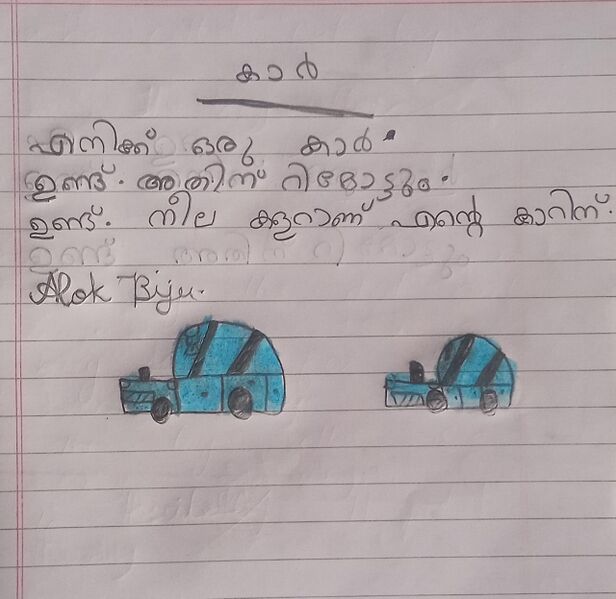 കാർ
എനിക്ക് ഒരു കാർ.
ഉണ്ട്. അതിന് റിമോട്ടും.
ഉണ്ട്. നീല കളറാണ് എന്റെ കാറിന്.
Alok Biju.